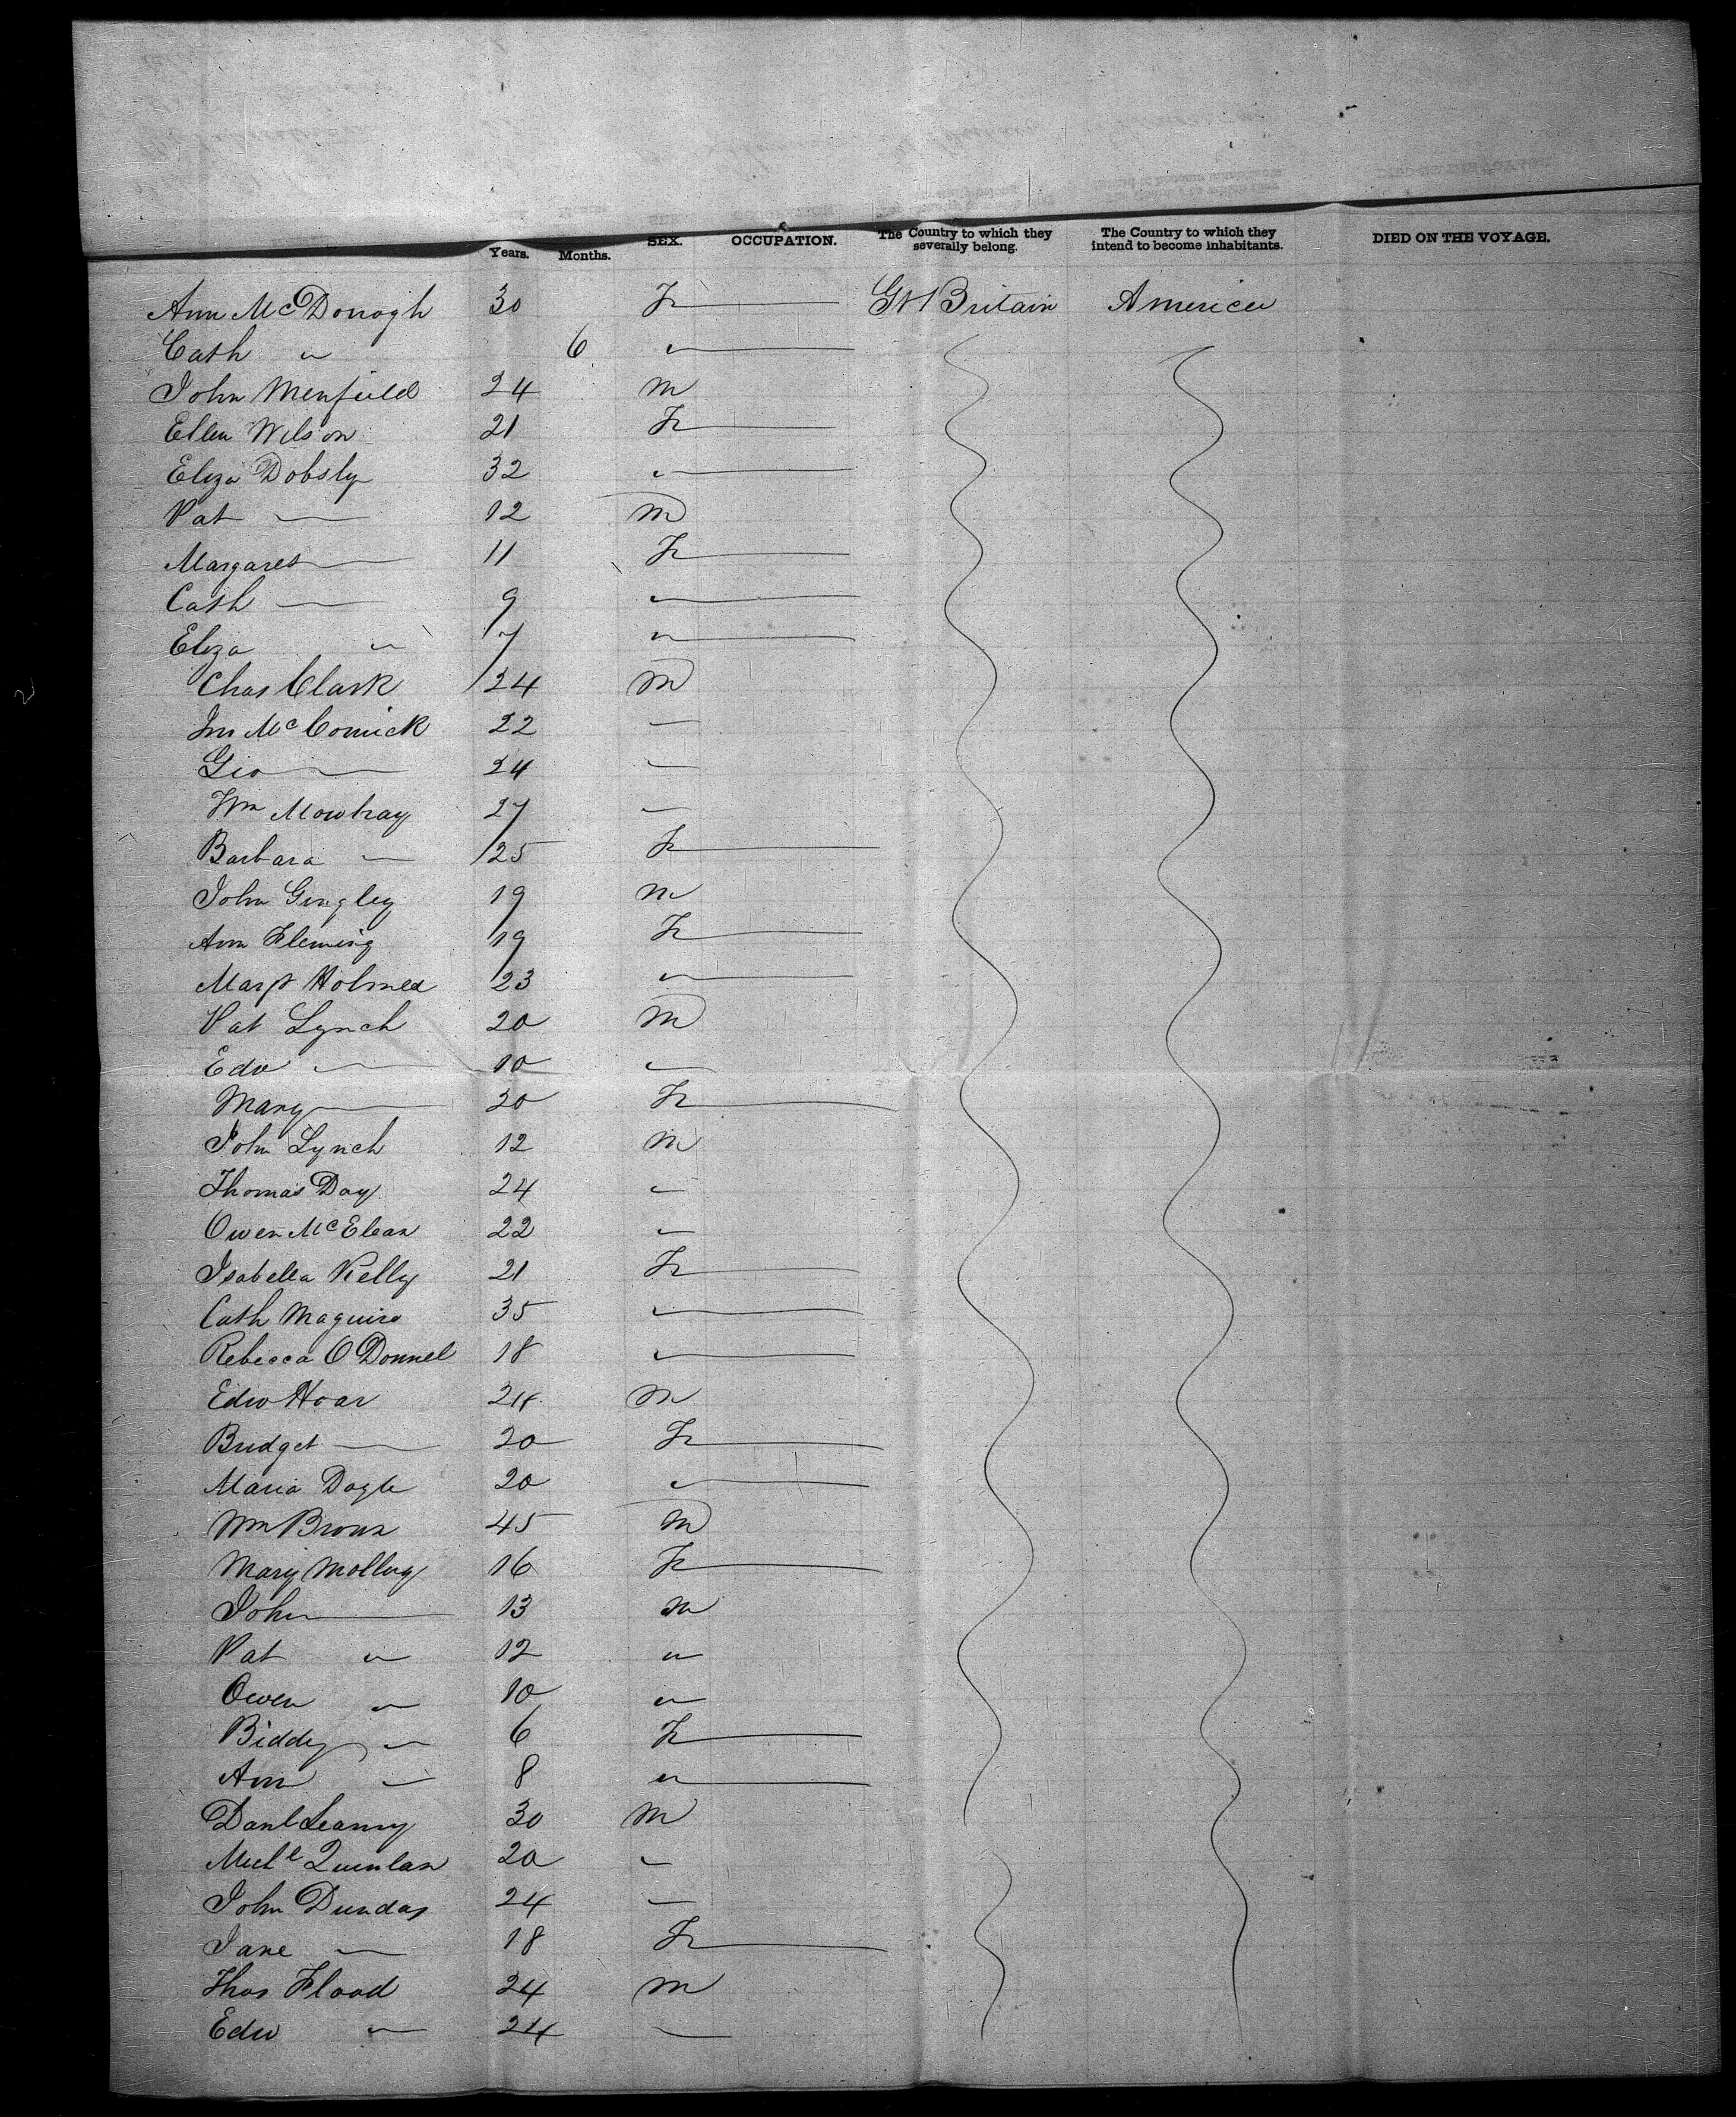 Years. Months. SEX. OCCUPATION. The Country to which they severally belong. The Country to which they intend to become inhabitants. DIED ON THE VOYAGE.
Ann McDonogh 30 F Gt Britain America
Cath " 6 "
John Menfield 24 M
Ellen Wilson 21 F
Eliza Dobsly 32 "
Pat — 12 M
Margaret — 11 F
Cath — 9 "
Eliza " 7 "
Chas Clark 24 M
Jno McComick 22 —
Geo — 24 —
Wm Mowbray 27 —
Barbara — 25 F
John Gingley 19 M
Ann Fleming 19 F
Margt Holmes 23 "
Pat Lynch 20 M
Edw — 10 —
Mary — 20 F
John Lynch 12 M
Thomas Day 24 "
Owen McElean 22 "
Isabella Kelly 21 F
Cath Maguire 35 "
Rebecca O Donnel 18 "
Edw Hoar 24 M
Bridget — 20 F
Maria Doyle 20 "
Wm Brown 45 M
Mary Molloy 16 F
John — 13 M
Pat " 12 "
Owen " 10 "
Biddy " 6 F
Ann " 8 "
Danl Leamy 30 M
Michl Quinlan 20 "
John Dundas 24 —
Jane — 18 F
Thos Flood 24 M
Edw " 24 —